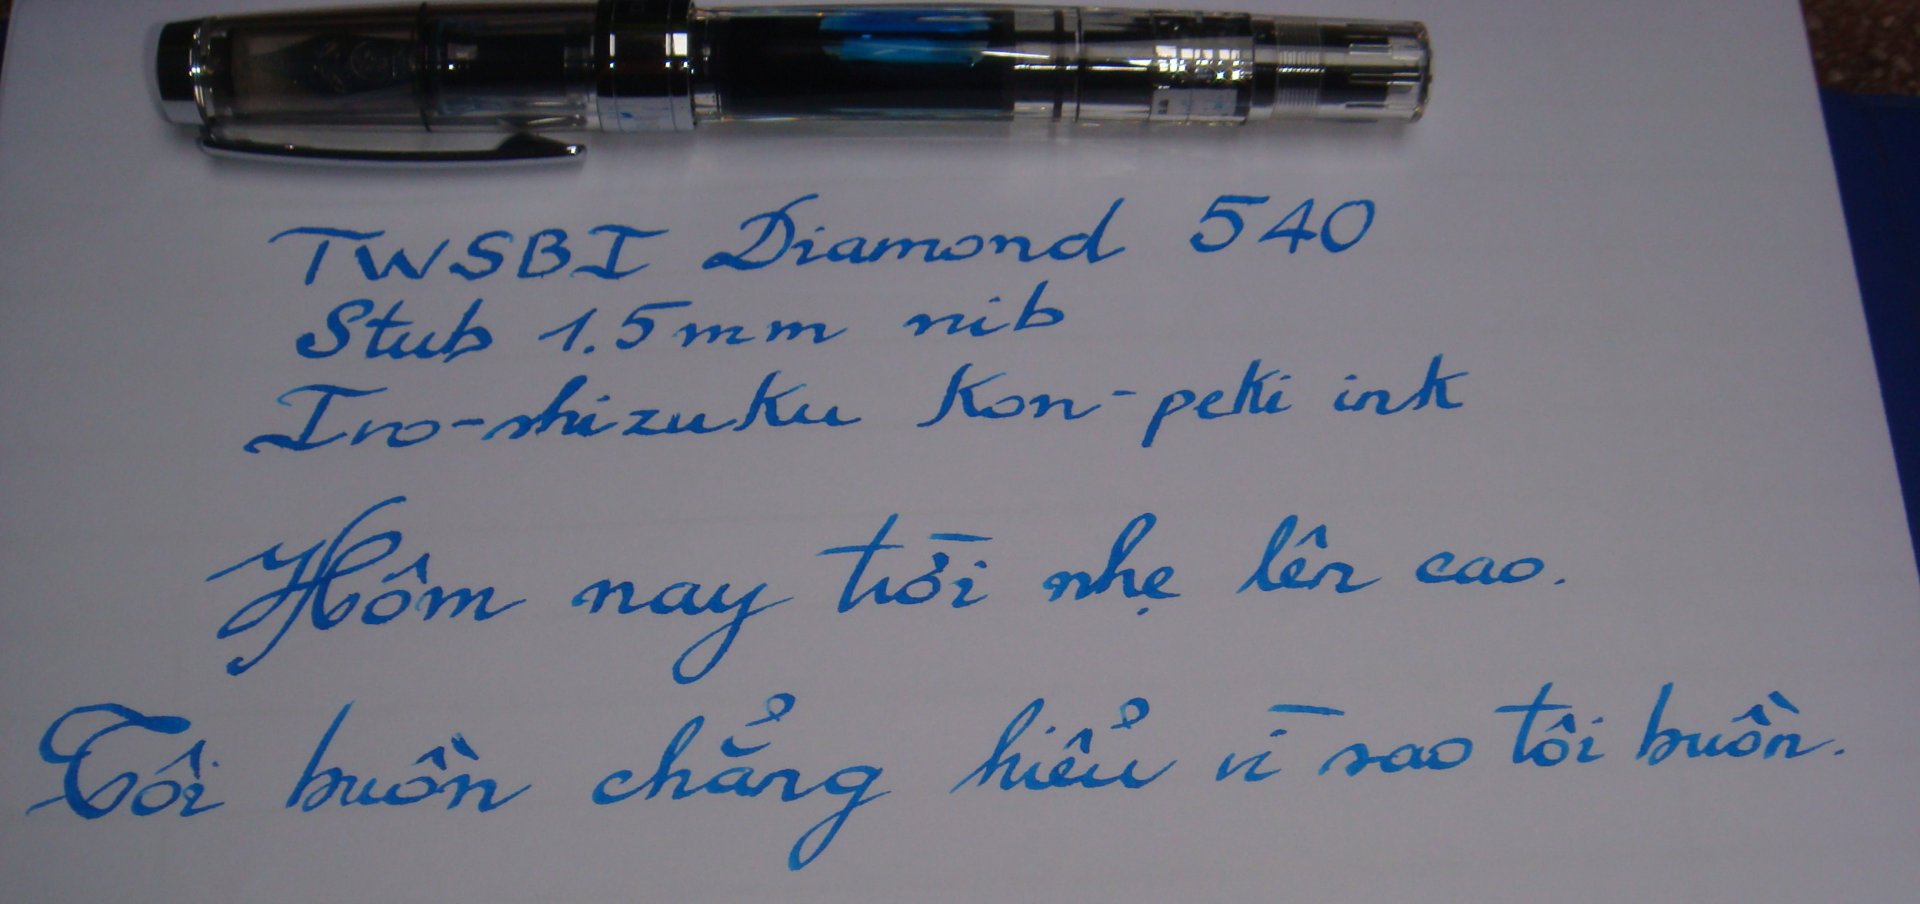 TWSBI Diamond 540
Stub 1.5mm nib
Iro-shizuku Kon-peki ink
Hôm nay trời nhẹ lên cao.
Tôi buồn chẳng hiểu vì sao tôi buồn.